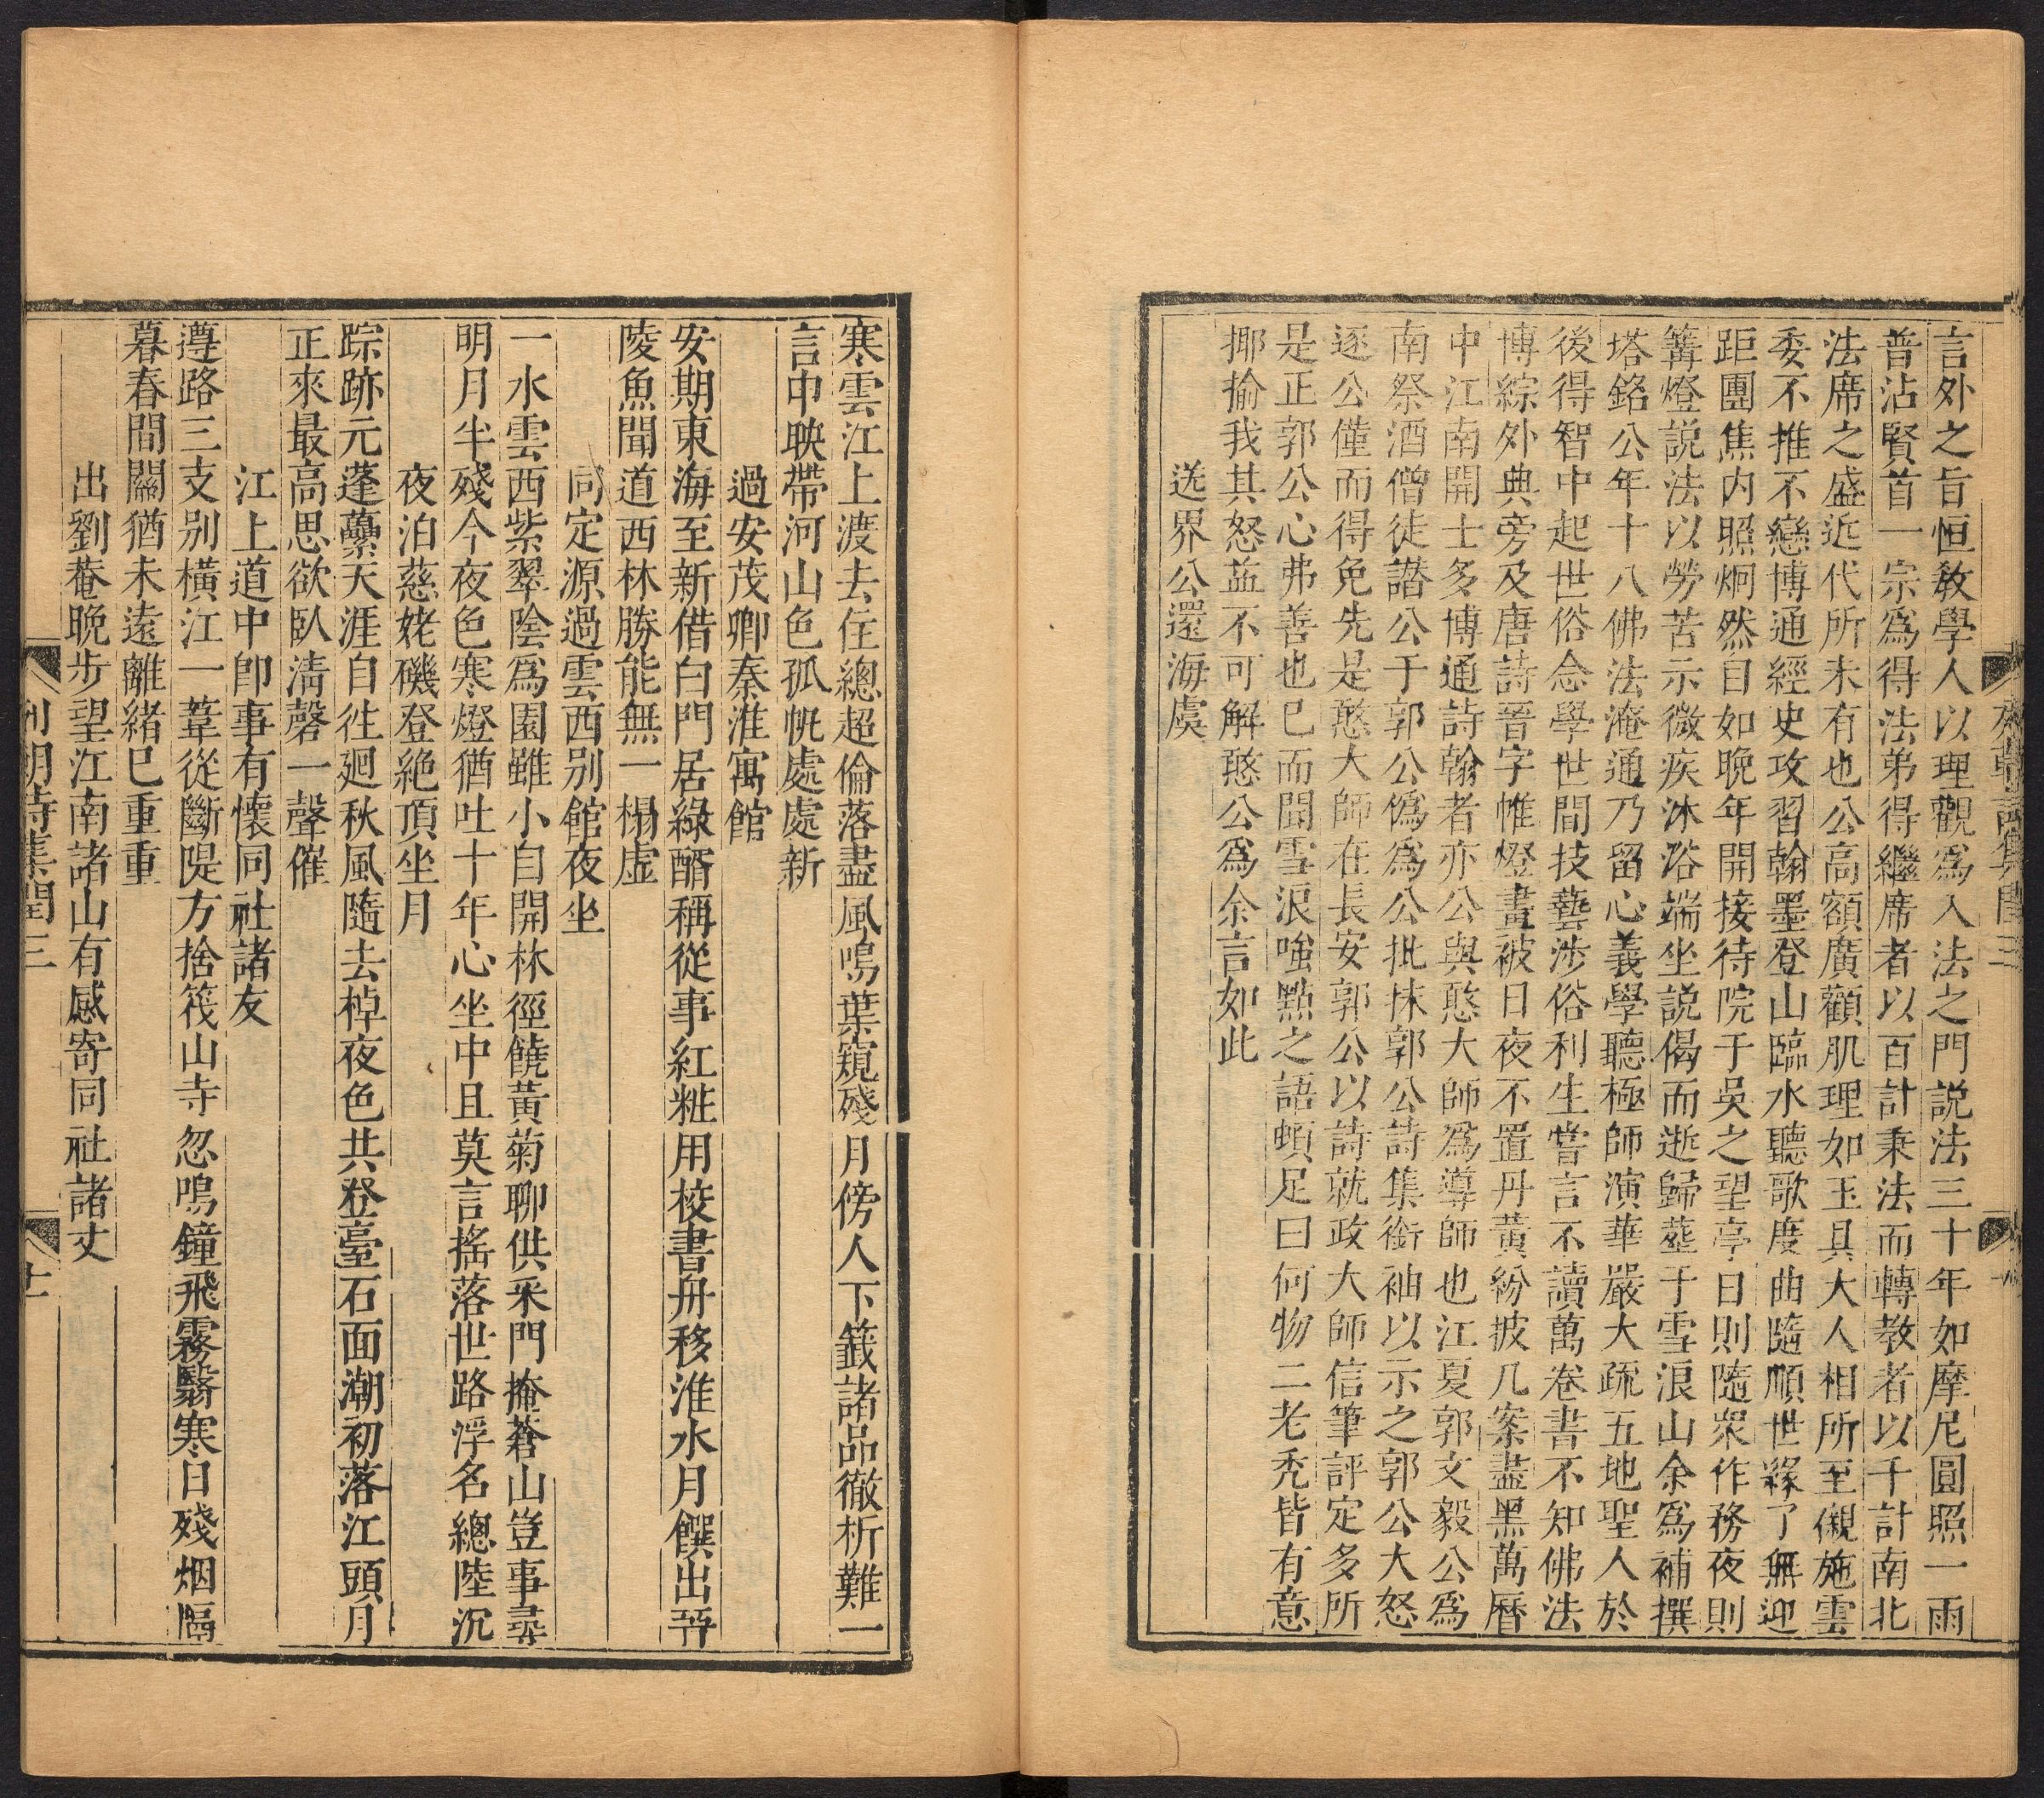 言外之旨恒敎學人以理觀爲入法之門説法三十年如摩尼圓照一雨
普沾賢首一宗爲得法弟得繼席者以百計秉法而轉教者以千計南北
法席之盛近代所未有也公高額廣顴肌理如玉具大人相所至儭施雲
委不推不戀博通經史攻習翰墨登山臨水聽歌度曲隨順世緣了無迎
距團焦内照炯然自如晚年開接待院于吳之望亭日則隨衆作務夜則
篝燈説法以勞苦示微疾沐浴端坐説偈而逝歸葬于雪浪山余爲補撰
塔銘公年十八佛法淹通乃留心義學聽極師演華嚴大疏五地聖人於
後得智中起世俗念學世間技藝涉俗利生嘗言不讀萬卷書不知佛法
博綜外典旁及唐詩晉字帷燈晝被日夜不置丹黃紛披几案盡黑萬曆
中江南開士多博通詩翰者亦公與憨大師爲導師也江夏郭文毅公爲
南祭酒僧徒譖公于郭公僞爲公批抹郭公詩集銜袖以示之郭公大怒
逐公僅而得免先是憨大師在長安郭公以詩就政大師信筆評定多所
是正郭公心弗善也已而聞雪浪嗤點之語頓足曰何物二老禿皆有意
揶揄我其怒益不可解憨公爲余言如此
送界公還海虞
寒雲江上渡去住總超倫落盡風鳴葉窺殘月傍人下籤諸品徹析難一
言中映帶河山色孤帆處處新
過安茂卿秦淮寓館
安期東海至新借白門居綠醑稱從事紅粧用校書舟移淮水月饌出孱
陵魚聞道西林勝能無一榻虛
同定源過雲西别館夜坐
一水雲西紫翠陰爲園雖小自開林徑饒黃菊聊供采門掩蒼山豈事尋
明月半殘今夜色寒燈猶吐十年心坐中且莫言搖落世路浮名總陸沉
夜泊慈姥磯登絶頂坐月
踪跡元蓬虆天涯自徃廻秋風隨去棹夜色共登臺石面潮初落江頭月
正來最高思欲臥淸磬一聲催
江上道中即事有懷同社諸友
遵路三支别橫江一葦從斷隄方捨筏山寺忽鳴鐘飛霧翳寒日殘烟隔
暮春間關猶未遠離緒已重重
出劉菴晩步望江南諸山有感寄同社諸丈
列朝詩集閏三
十一